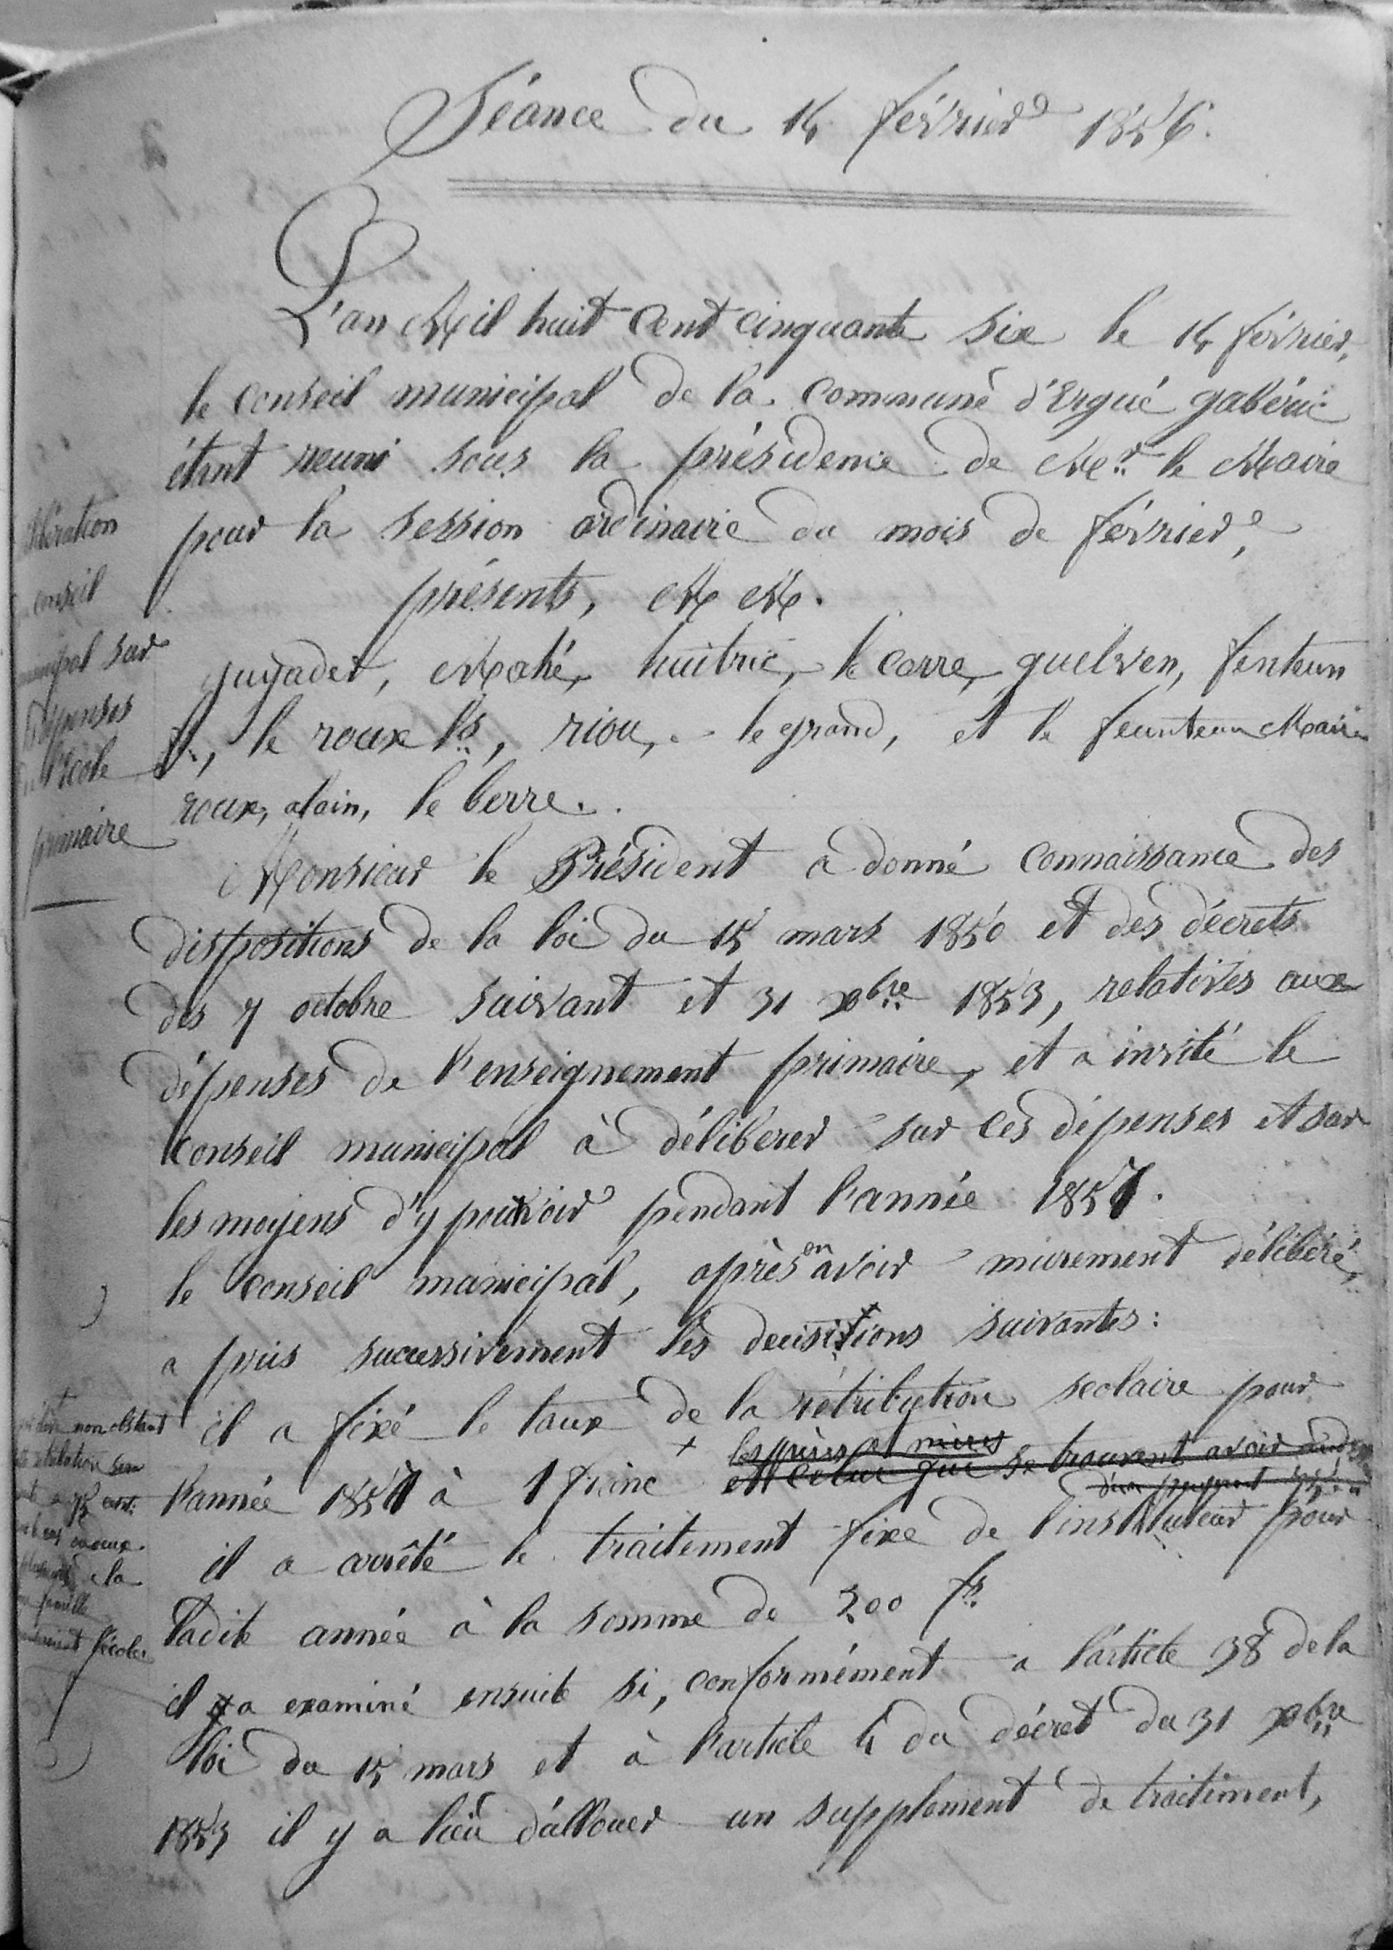 Séance du 14 février 1856.
L'an Mil huit Cent cinquante six le 14 février,
le conseil municipal de la commune d'Ergué gabéric
étant reuni sous la présidence de Mr le Maire
pour la session ordinaire du mois de février,
présents, MM.
Mahé, huitric, le corre, guelven, fenteun
le roux, riou, le grand, et le feunteun Maire
roux, alain, le berre.
Monsieur le Président a donné connaissance des
dispositions de la loi du 15 mars 1850 et des décrets
des 7 octobre suivant et 31 xbre 1853, relatives aux
dépenses de l'enseignement primaire, et a invité le
conseil municipal à délibérer sur ces dépenses et sur
les moyens d'y pourvoir pendant l'année 1857.
le conseil municipal, après en avoir murement délibéré,
a pris successivement les decisions suivantes:
il a fixé le taux de la rétribution scolaire pour
l'année 1857 à 1 franc + les frères et que se trouvent avoir
il a arrêté le traitement fixe de l'instituteur pour
ladite année à la somme de 200 fs
il a examiné ensuite si, conformément a l'article 38 de la
loi du 15 mars et à l'article 4 du décret du 31 xbre
1853 il y a lieu d'allouer un supplement de traitement,
libération
conseil
municipal sur
dépenses
l'école
primaire
non obstant
la
famille
l'école